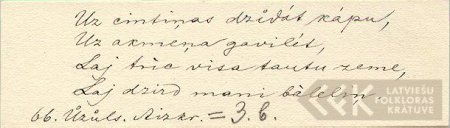 Uz cintiņas dzīdāt kāpu,
Uz akmeņa gavilēt,
Laj trīc visa tautu zeme,
Laj dzird mani bāleleņ
66. Ūzūls. Aizkr. = 3. b.
LATVIEŠU
FOLKLORAS
KRĀTUVE